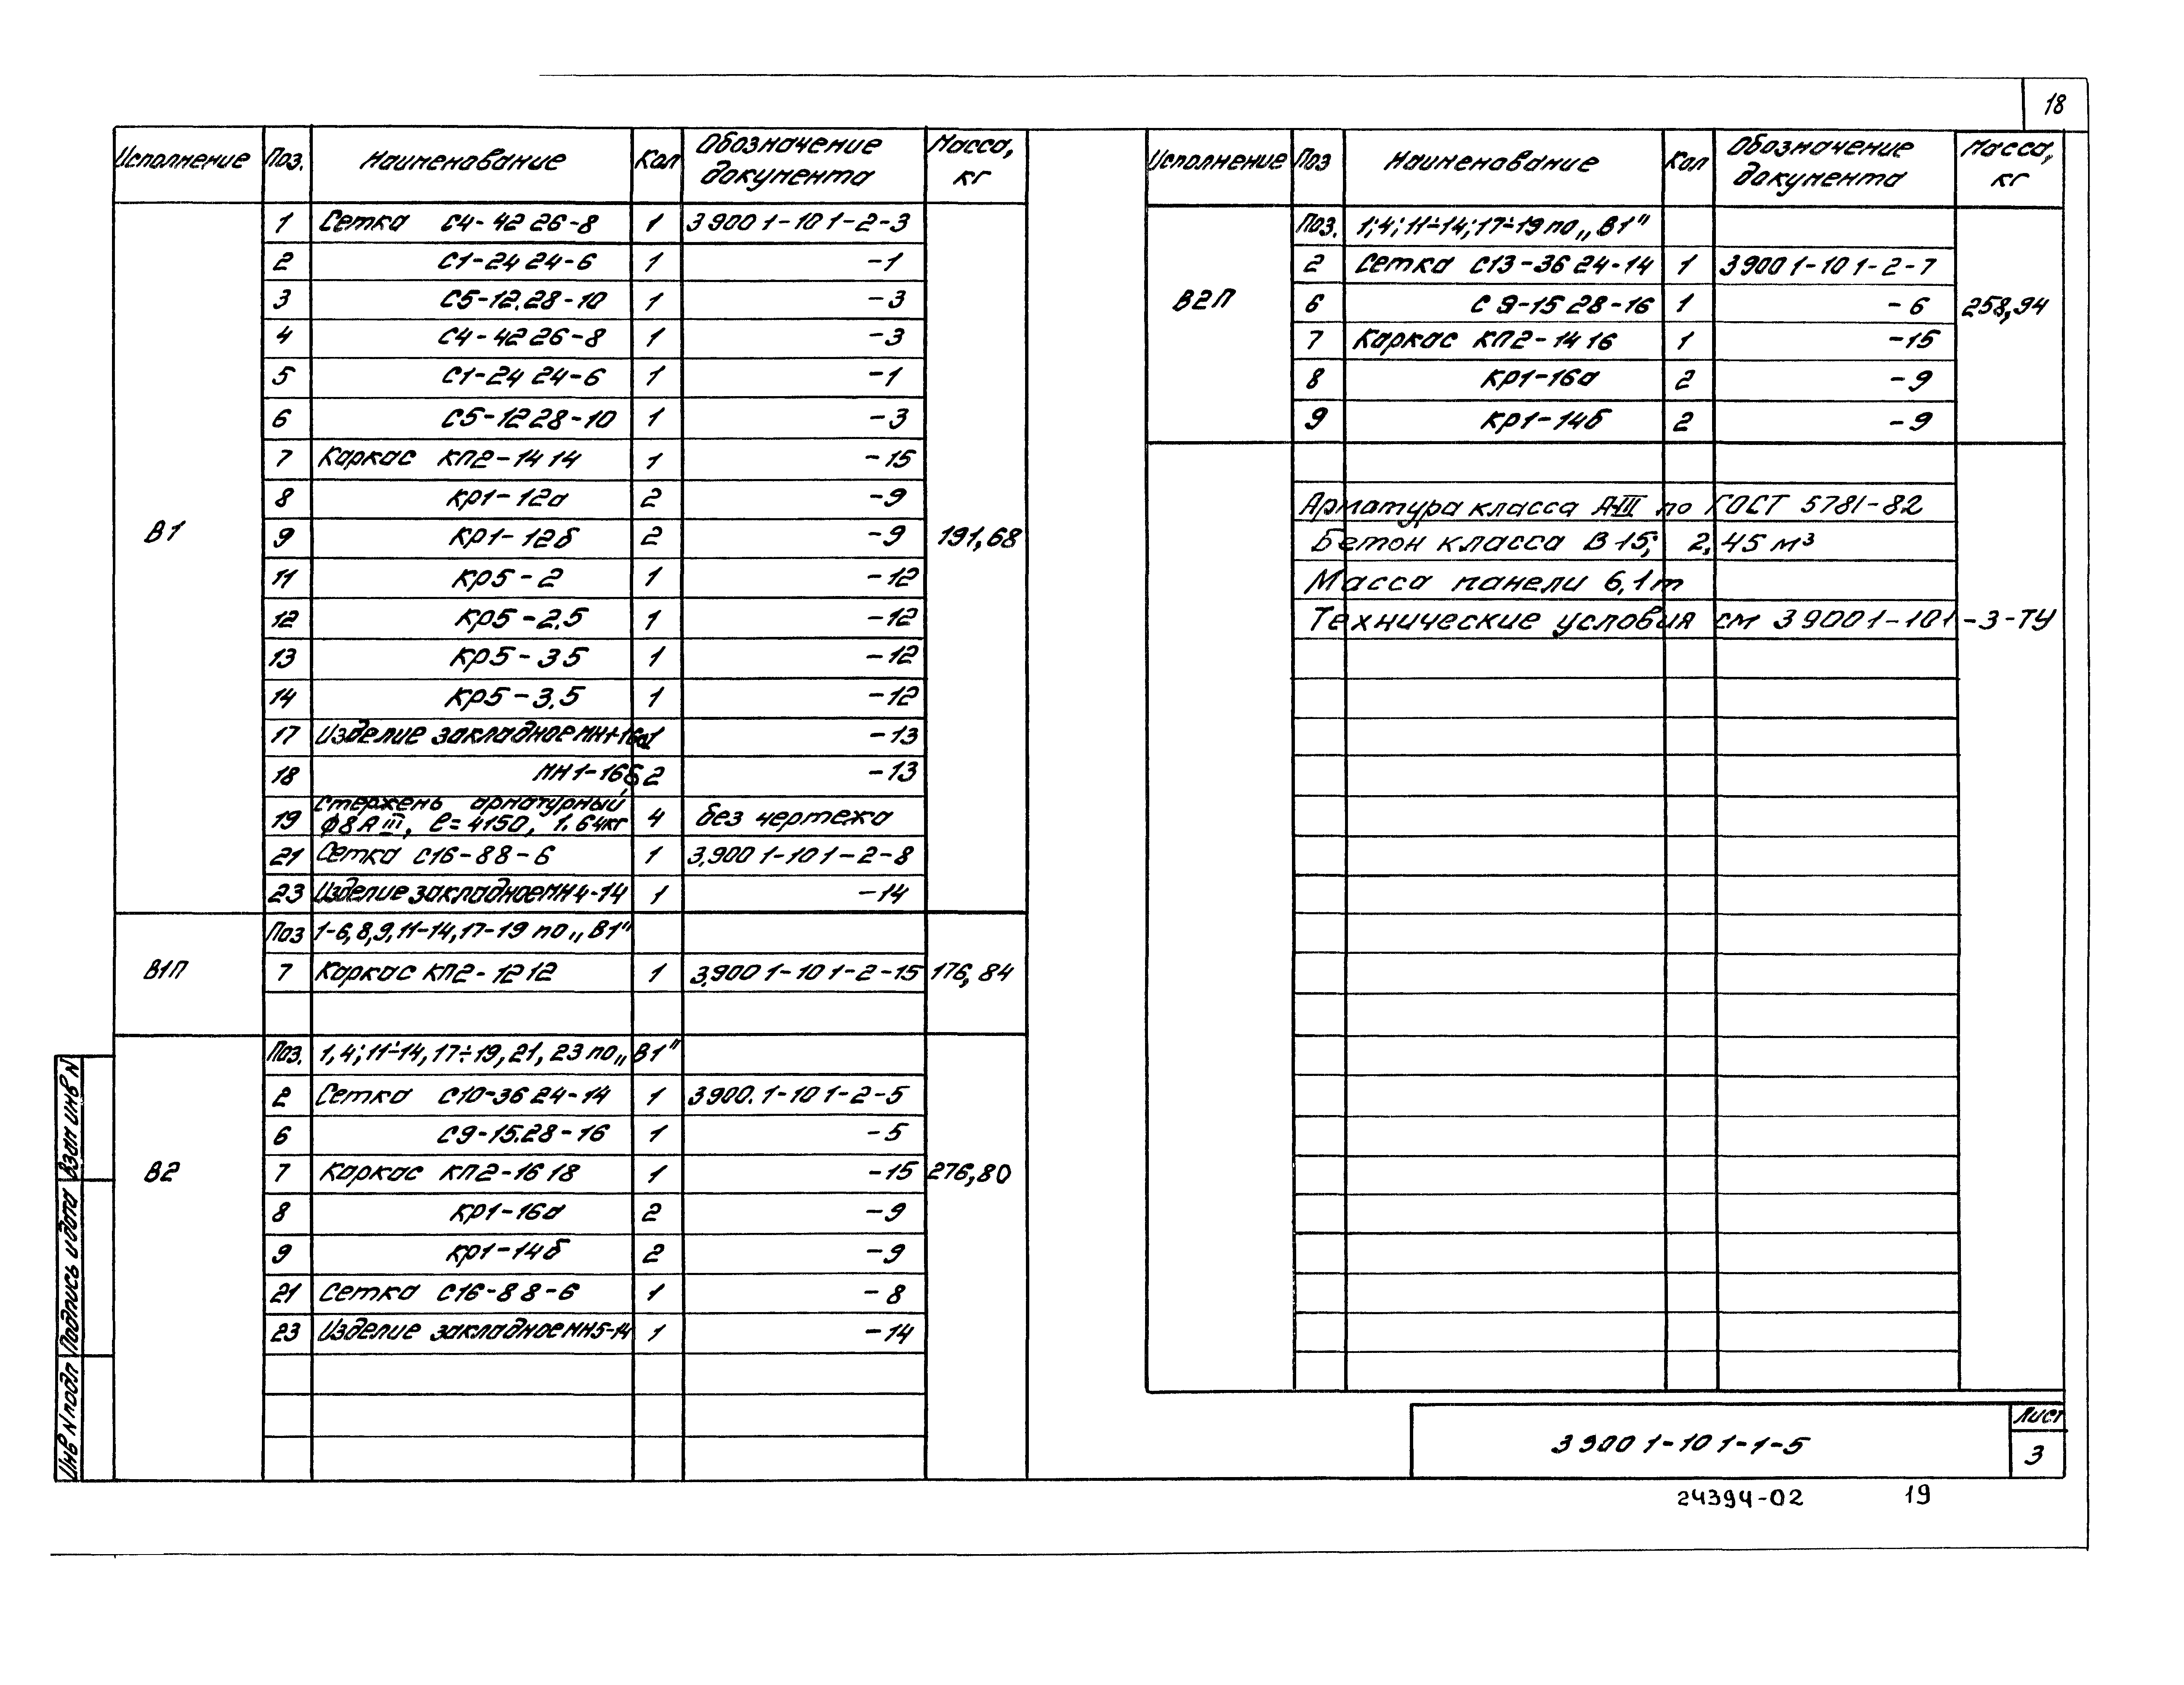 18
Исполнение Поз. Наименование Кол Обозначение документа Масса, кг
В1 191,68
1 Сетка С4-42 26-8 1 3 900 1-10 1-2-3
2 С1-24 24-6 1 -1
3 С5-12.28-10 1 -3
4 С4-42 26-8 1 -3
5 С1-24 24-6 1 -1
6 С5-12 28-10 1 -3
7 Каркас КП2-14 14 1 -15
8 КР1-12а 2 -9
9 КР1-12б 2 -9
11 КР5-2 1 -12
12 КР5-2.5 1 -12
13 КР5-3 5 1 -12
14 КР5-3.5 1 -12
17 Изделие закладное МН1-16а 1 -13
18 МН1-16б 2 -13
19 Стержень арматурный
ф8АIII, ℓ=4150, 1.64кг 4 без чертежа
21 Сетка С16-8 8-6 1 3.900 1-10 1-2-8
23 Изделие закладное МН4-14 1 -14
В1П 176,84
Поз 1-6,8,9,11-14,17-19 по „В1"
7 Каркас КП2-12 12 1 3.900 1-10 1-2-15
В2 276,80
Поз. 1,4;11÷14,17÷19,21,23 по „В1"
2 Сетка С10-36 24-14 1 3 900.1-10 1-2-5
6 С9-15.28-16 1 -5
7 Каркас КП2-16 18 1 -15
8 КР1-16а 2 -9
9 КР1-14б 2 -9
21 Сетка С16-8 8-6 1 -8
23 Изделие закладное МН5-14 1 -14
Исполнение Поз Наименование Кол Обозначение документа Масса, кг
В2П 258,94
Поз. 1;4;11÷14;17÷19 по „В1"
2 Сетка С13-36 24-14 1 3 900 1-10 1-2-7
6 С 9-15 28-16 1 -6
7 Каркас КП2-14 16 1 -15
8 КР1-16а 2 -9
9 КР1-14б 2 -9
Арматура класса А-III по ГОСТ 5781-82
Бетон класса В 15; 2,45 м³
Масса панели 6,1т
Технические условия см 3 900 1-10 1-3-ТУ
Инв N подл Подпись и дата Взам инв N
3 900 1-10 1-1-5
Лист
3
24394-02 19